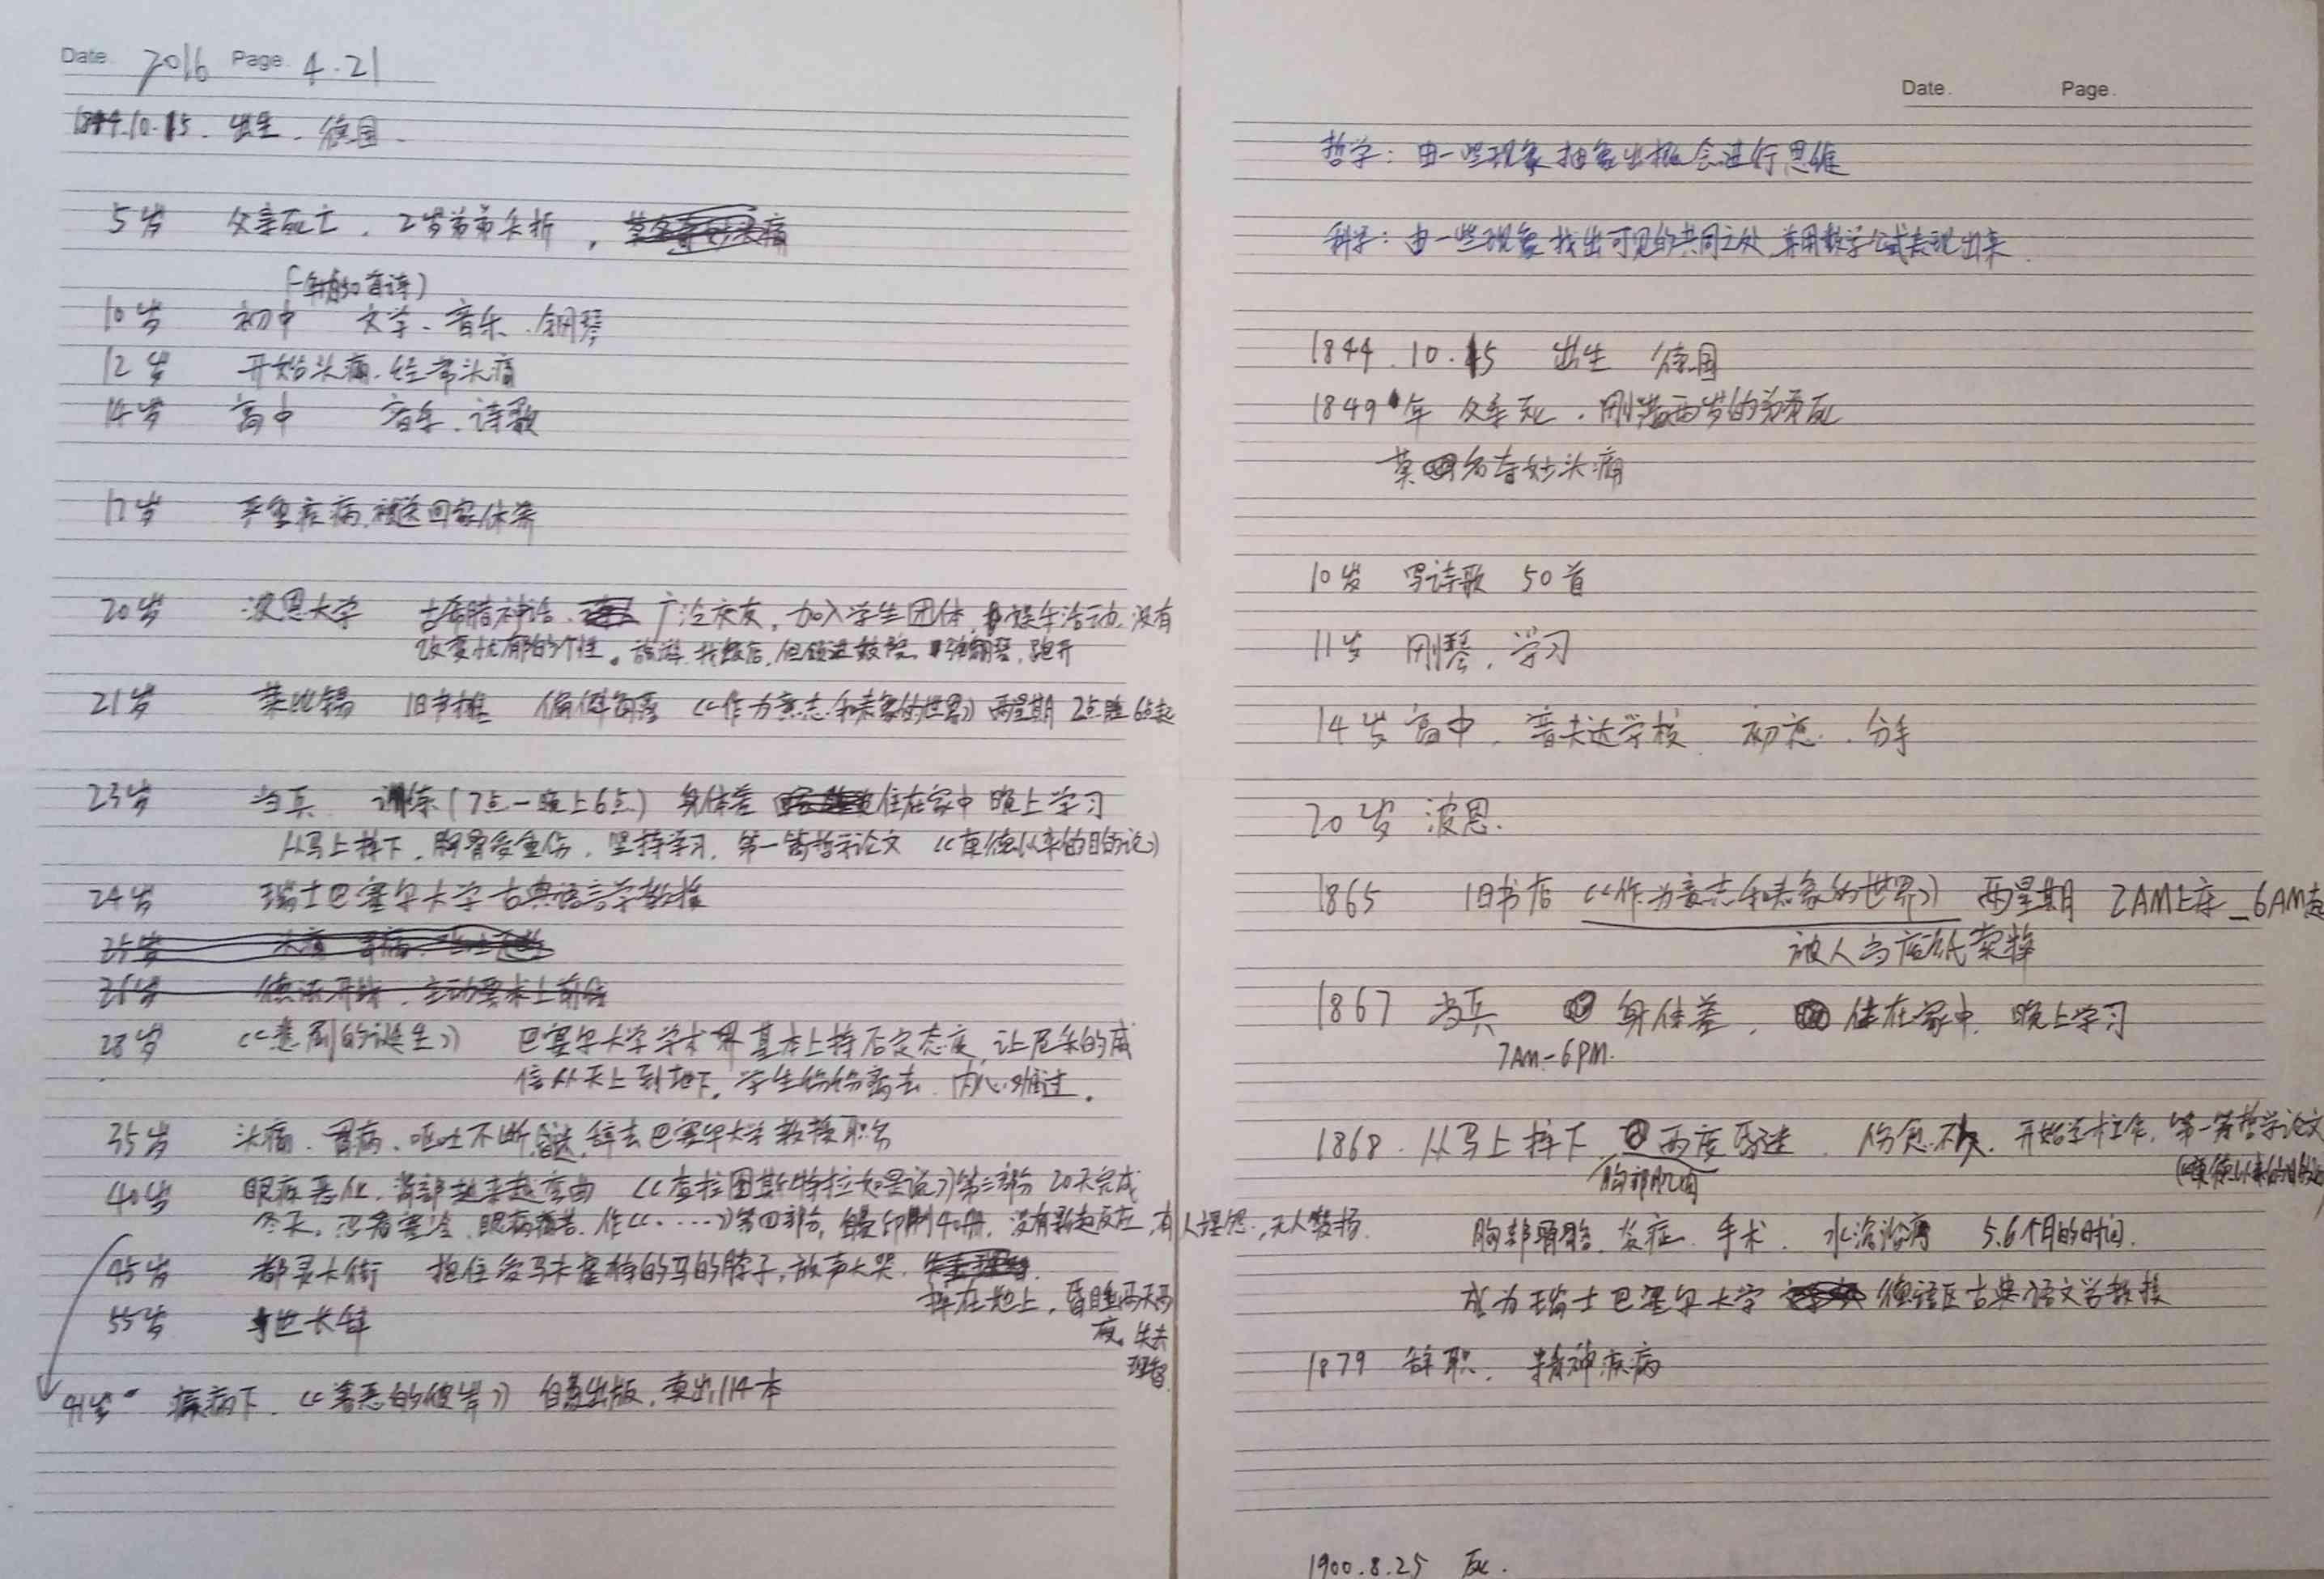 Date. 2016 Page. 4.21
1844.10.15. 出生. 德国.
5岁 父亲死亡. 2岁弟弟夭折,
(一年内50首诗)
10岁 初中 文学、音乐、钢琴
12岁 开始头痛. 经常头痛
14岁 高中 音乐. 诗歌
17岁 严重疾病, 被送回家休养
20岁 波恩大学 古希腊神话. 广泛交友, 加入学生团体, 娱乐活动, 没有
改变忧郁的个性。旅游, 找饭店, 但领进妓院, 弹钢琴, 跑开
21岁 莱比锡 旧书摊 偏僻角落 《作为意志和表象的世界》 两星期 2点睡6点起
23岁 当兵 训练(7点-晚上6点) 身体差 住在家中 晚上学习
从马上摔下, 胸骨受重伤, 坚持学习, 第一篇哲学论文 《康德以来的目的论》
24岁 瑞士巴塞尔大学古典语言学教授
25岁 头痛 胃病
26岁 德法开战, 主动要求上前线
28岁 《悲剧的诞生》 巴塞尔大学学术界基本上持否定态度, 让尼采的威
信从天上到地下, 学生纷纷离去, 内心难过.
35岁 头痛、胃病、呕吐不断, 辞去巴塞尔大学教授职务
40岁 眼疾恶化, 背部越来越弯曲 《查拉图斯特拉如是说》第三部分 20天完成
冬天, 忍着寒冷, 眼病痛苦, 作《……》第四部分, 自费印刷40册, 没有引起反应, 有人埋怨, 无人赞扬.
45岁 都灵大街 抱住受马夫虐待的马的脖子, 放声大哭,
摔在地上, 昏睡两天两
夜, 失去
理智.
55岁 与世长辞
41岁 疾病下. 《善恶的彼岸》 自费出版, 卖出114本
Date. Page.
哲学: 由一些现象抽象出概念进行思维
科学: 由一些现象找出可见的共同之处, 并用数学公式表现出来.
1844.10.15 出生 德国
1849年 父亲死. 刚满两岁的弟弟死
莫名奇妙头痛
10岁 写诗歌 50首
11岁 刚琴. 学习
14岁 高中. 普夫达学校 初恋. 分手
20岁 波恩.
1865 旧书店 《作为意志和表象的世界》 两星期 2AM上床_6AM起
被人当废纸卖掉
1867 当兵 身体差, 住在家中, 晚上学习
7AM-6PM.
1868. 从马上摔下 两度昏迷. 伤愈不久, 开始工作, 第一篇哲学论文
胸部肌肉 《康德以来的目的论
胸部骨骼, 炎症, 手术, 水浴治疗 5.6个月的时间.
成为瑞士巴塞尔大学 德语区古典语文学教授
1879 辞职, 精神疾病
1900.8.25 死.